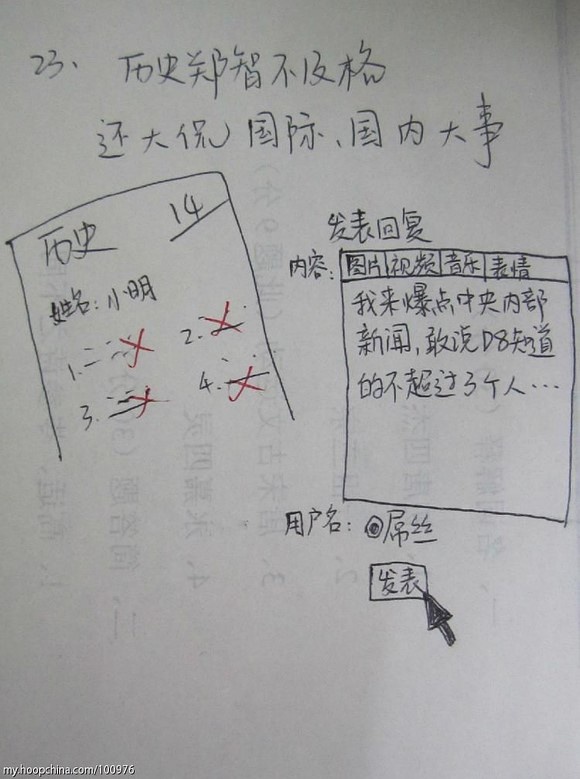 23、历史郑智不及格
还大侃国际、国内大事
历史 14
姓名:小明
1.
2.
3.
4.
发表回复
内容:
图片 视频 音乐 表情
我来爆点中央内部
新闻,敢说D8知道
的不超过3个人…
用户名:@屌丝
发表
my.hoopchina.com/100976